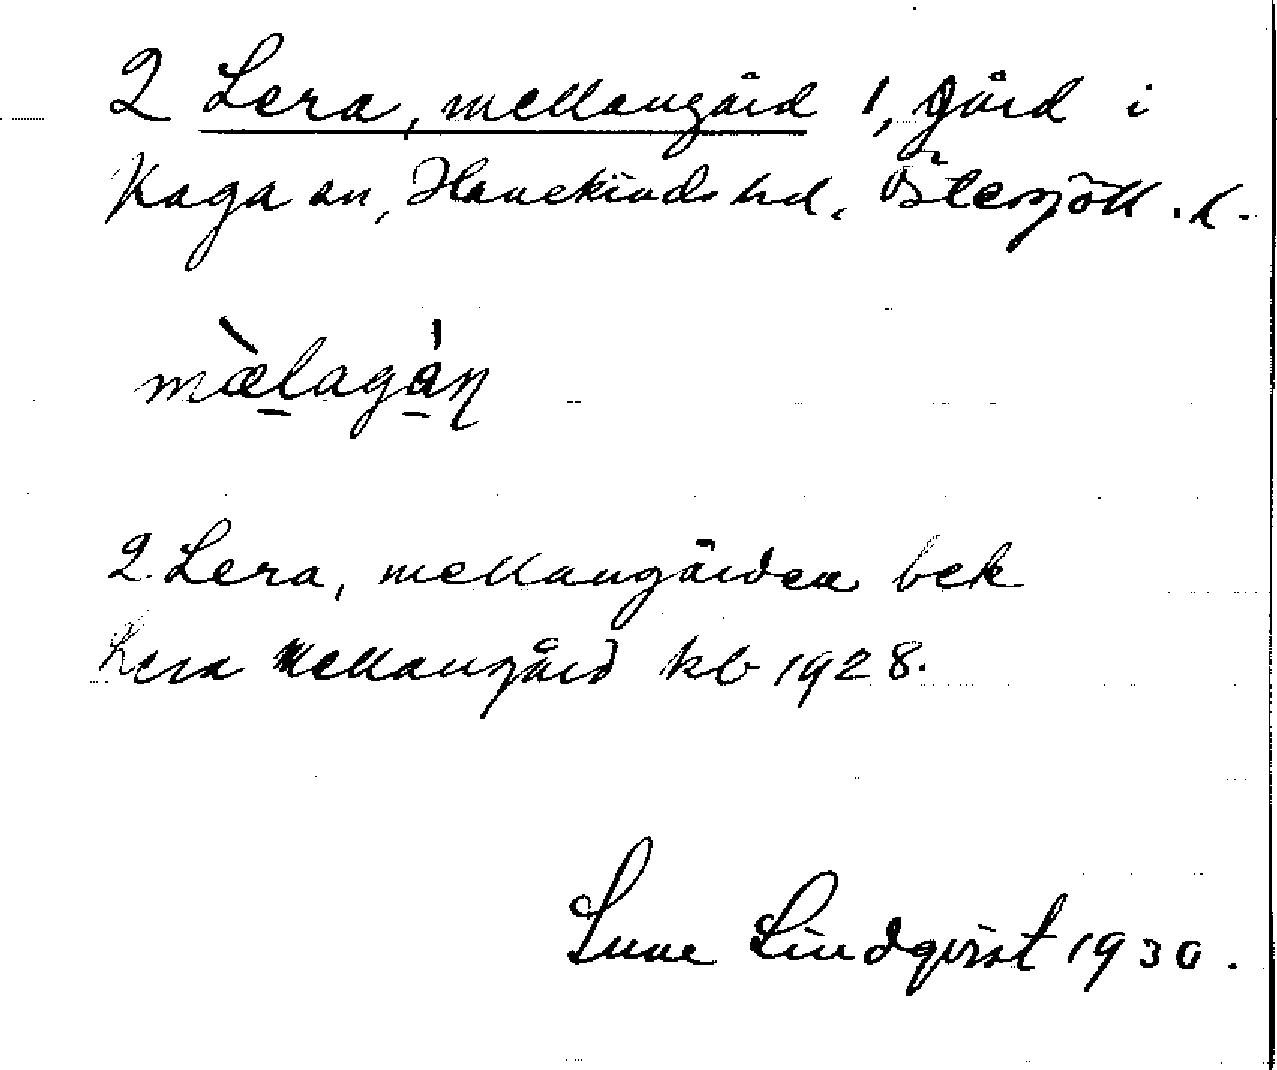 2 Lera, mellangård 1, gård i
Kaga sn, Hanekinds hd, Östergötl. l.
mæ̀lagáɳ
2 Lera, mellangården bek
Lera Mellangård kb 1928.
Sune Lindqvist 1930.